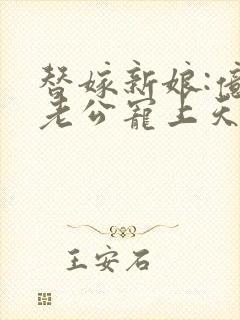 替嫁新娘:億
老公寵上天
王安石